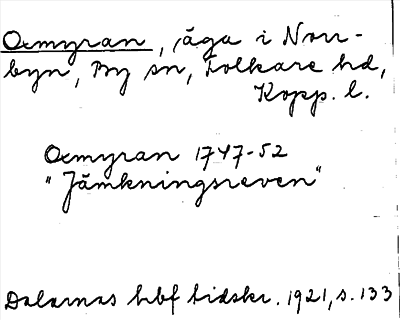 Oxmyran, äga i Norr-
byn, By sn, Folkare hd,
Kopp. l.
Oxmyran 1747-52
"Jämkningsreven"
Dalarnas hbf tidskr. 1921, s. 133